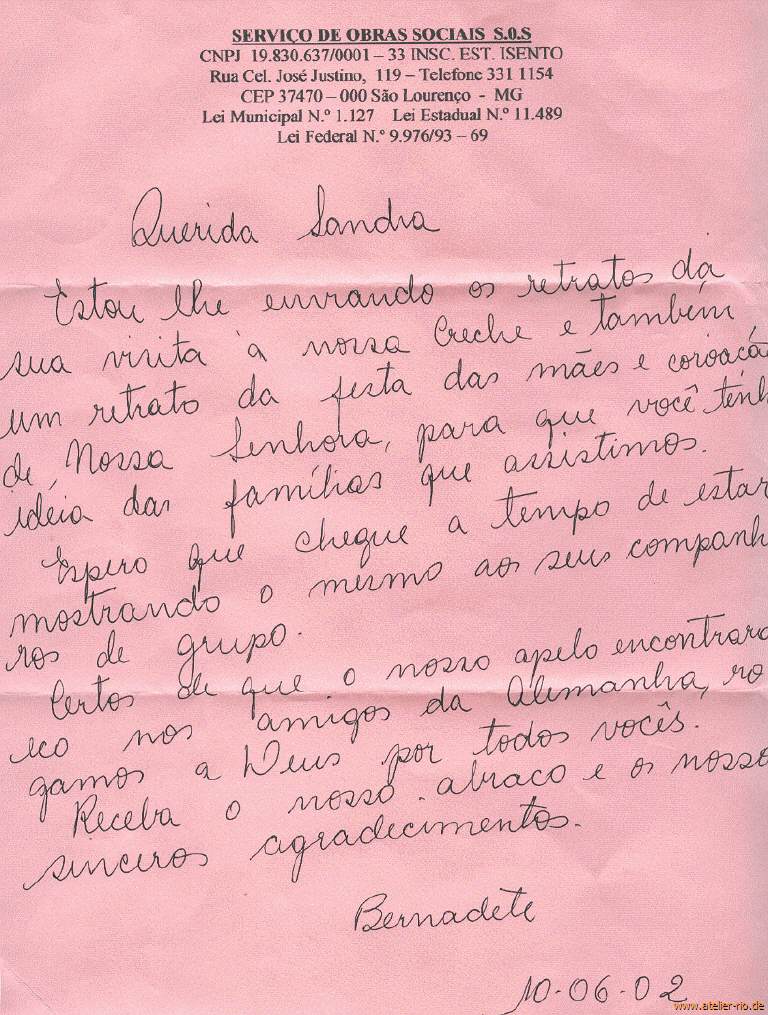 SERVIÇO DE OBRAS SOCIAIS S.O.S
CNPJ 19.830.637/0001 – 33 INSC. EST. ISENTO
Rua Cel. José Justino, 119 – Telefone 331 1154
CEP 37470 – 000 São Lourenço - MG
Lei Municipal N.º 1.127 Lei Estadual N.º 11.489
Lei Federal N.º 9.976/93 – 69
Querida Sandra
Estou lhe enviando os retratos da
sua visita à nossa Creche e também,
um retrato da festa das mães e coroaçã
de Nossa Senhora, para que você tenh
ideia das famílias que assistimos.
Espero que chegue a tempo de estar
mostrando o mesmo aos seus companh
ros de grupo.
Certos de que o nosso apelo encontrará
eco nos amigos da Alemanha, ro
gamos a Deus por todos vocês.
Receba o nosso abraço e os nosso
sinceros agradecimentos.
Bernadete
10-06-02
www.atelier-rio.de